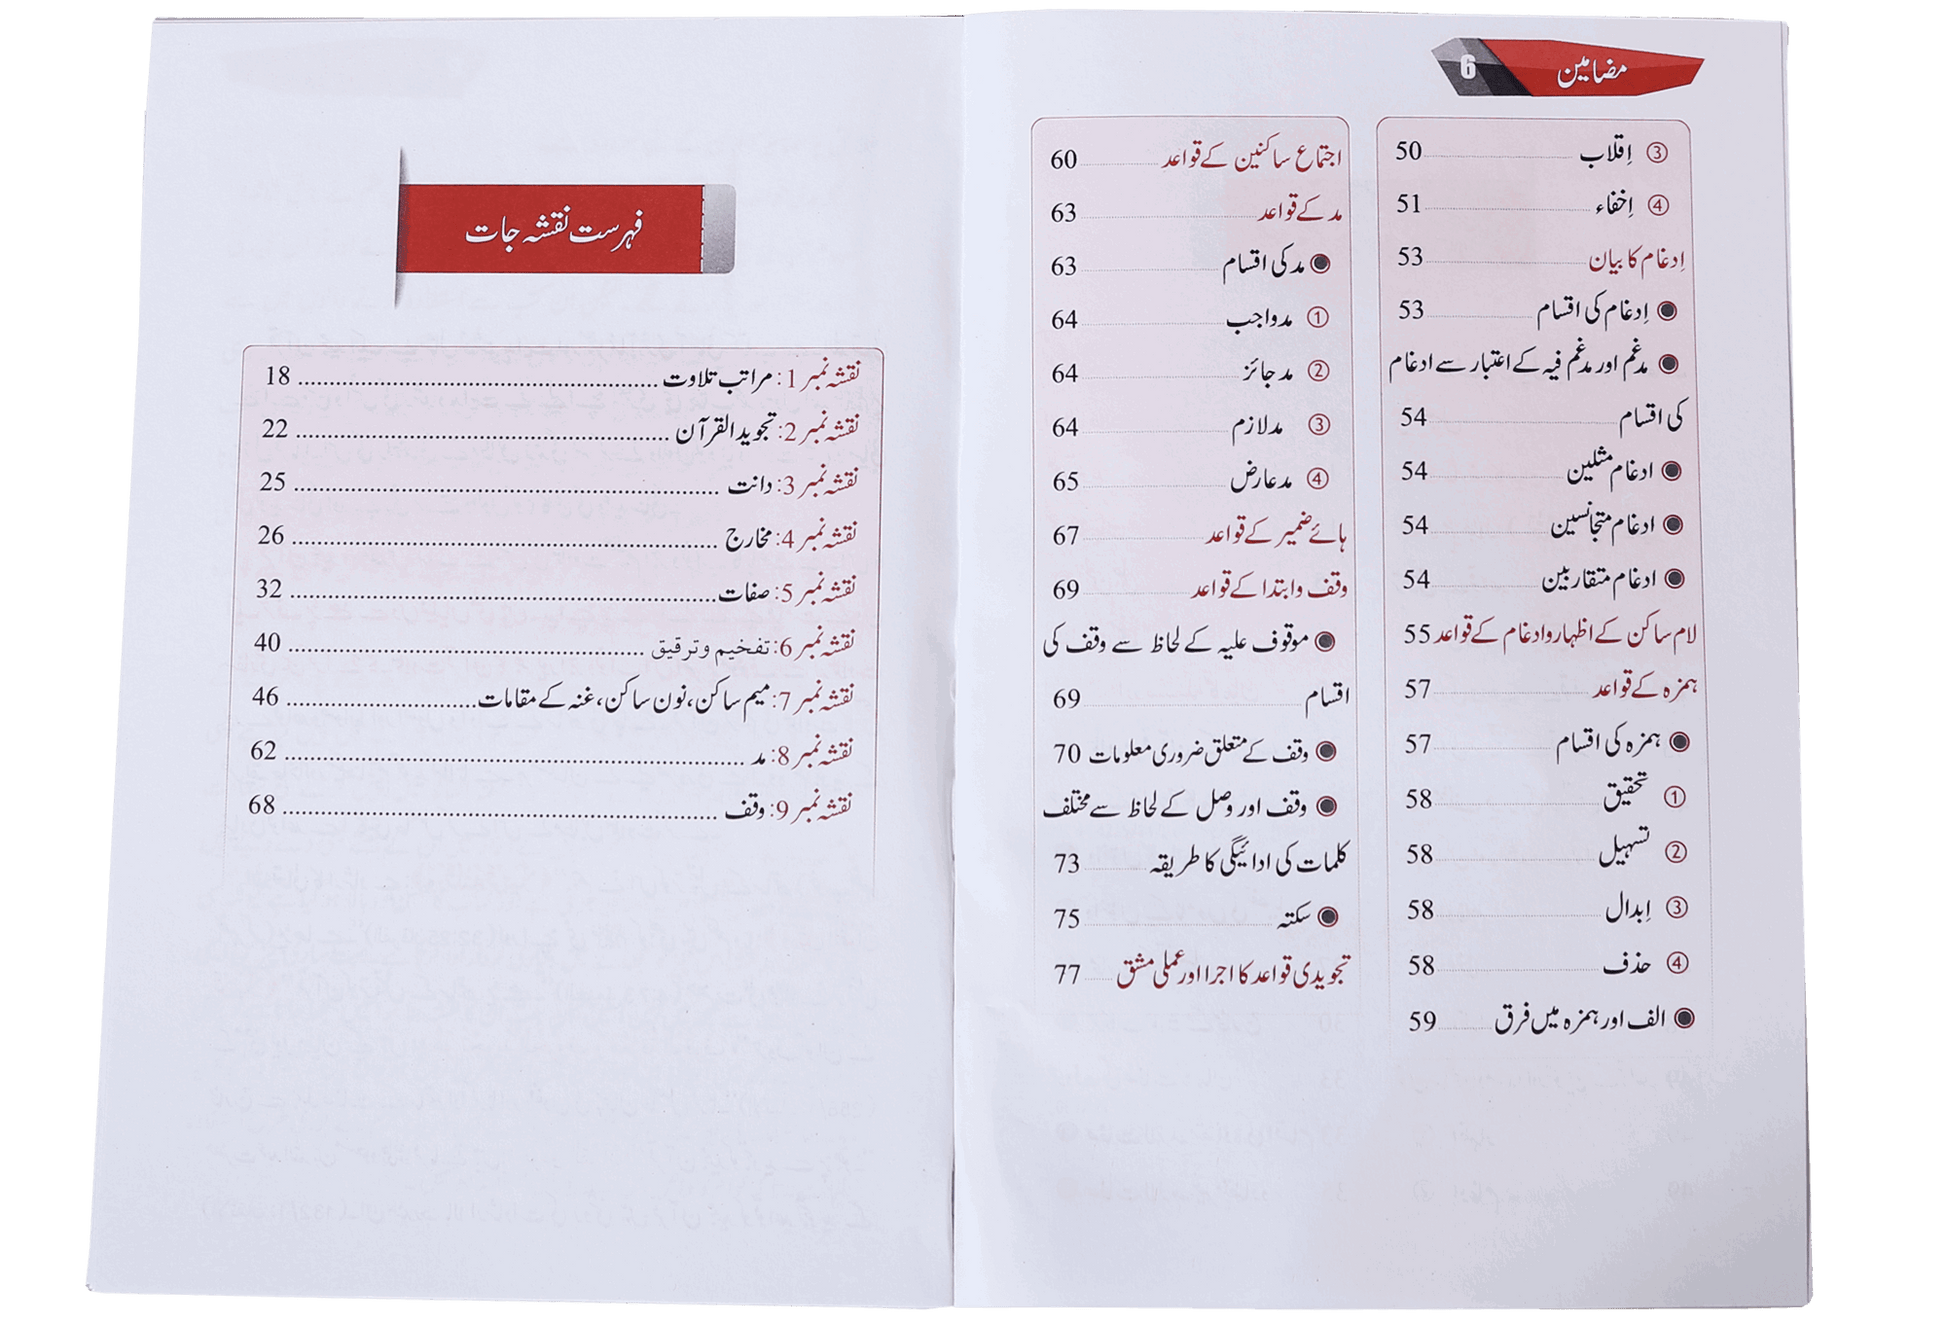 مضامین 6
③ اِقلاب 50
④ اِخفاء 51
اِدغام کا بیان 53
● اِدغام کی اقسام 53
● مدغم اور مدغم فیہ کے اعتبار سے ادغام
کی اقسام 54
● ادغام مثلین 54
● ادغام متجانسین 54
● ادغام متقاربین 54
لام ساکن کے اظہار وادغام کے قواعد 55
ہمزہ کے قواعد 57
● ہمزہ کی اقسام 57
① تحقیق 58
② تسہیل 58
③ اِبدال 58
④ حذف 58
● الف اور ہمزہ میں فرق 59
اجتماع ساکنین کے قواعد 60
مد کے قواعد 63
● مد کی اقسام 63
① مد واجب 64
② مد جائز 64
③ مد لازم 64
④ مد عارض 65
ہائے ضمیر کے قواعد 67
وقف وابتدا کے قواعد 69
● موقوف علیہ کے لحاظ سے وقف کی
اقسام 69
● وقف کے متعلق ضروری معلومات 70
● وقف اور وصل کے لحاظ سے مختلف
کلمات کی ادائیگی کا طریقہ 73
● سکتہ 75
تجویدی قواعد کا اجرا اور عملی مشق 77
فہرست نقشہ جات
نقشہ نمبر 1: مراتب تلاوت 18
نقشہ نمبر 2: تجوید القرآن 22
نقشہ نمبر 3: دانت 25
نقشہ نمبر 4: مخارج 26
نقشہ نمبر 5: صفات 32
نقشہ نمبر 6: تفخیم و ترقیق 40
نقشہ نمبر 7: میم ساکن، نون ساکن، غنہ کے مقامات 46
نقشہ نمبر 8: مد 62
نقشہ نمبر 9: وقف 68